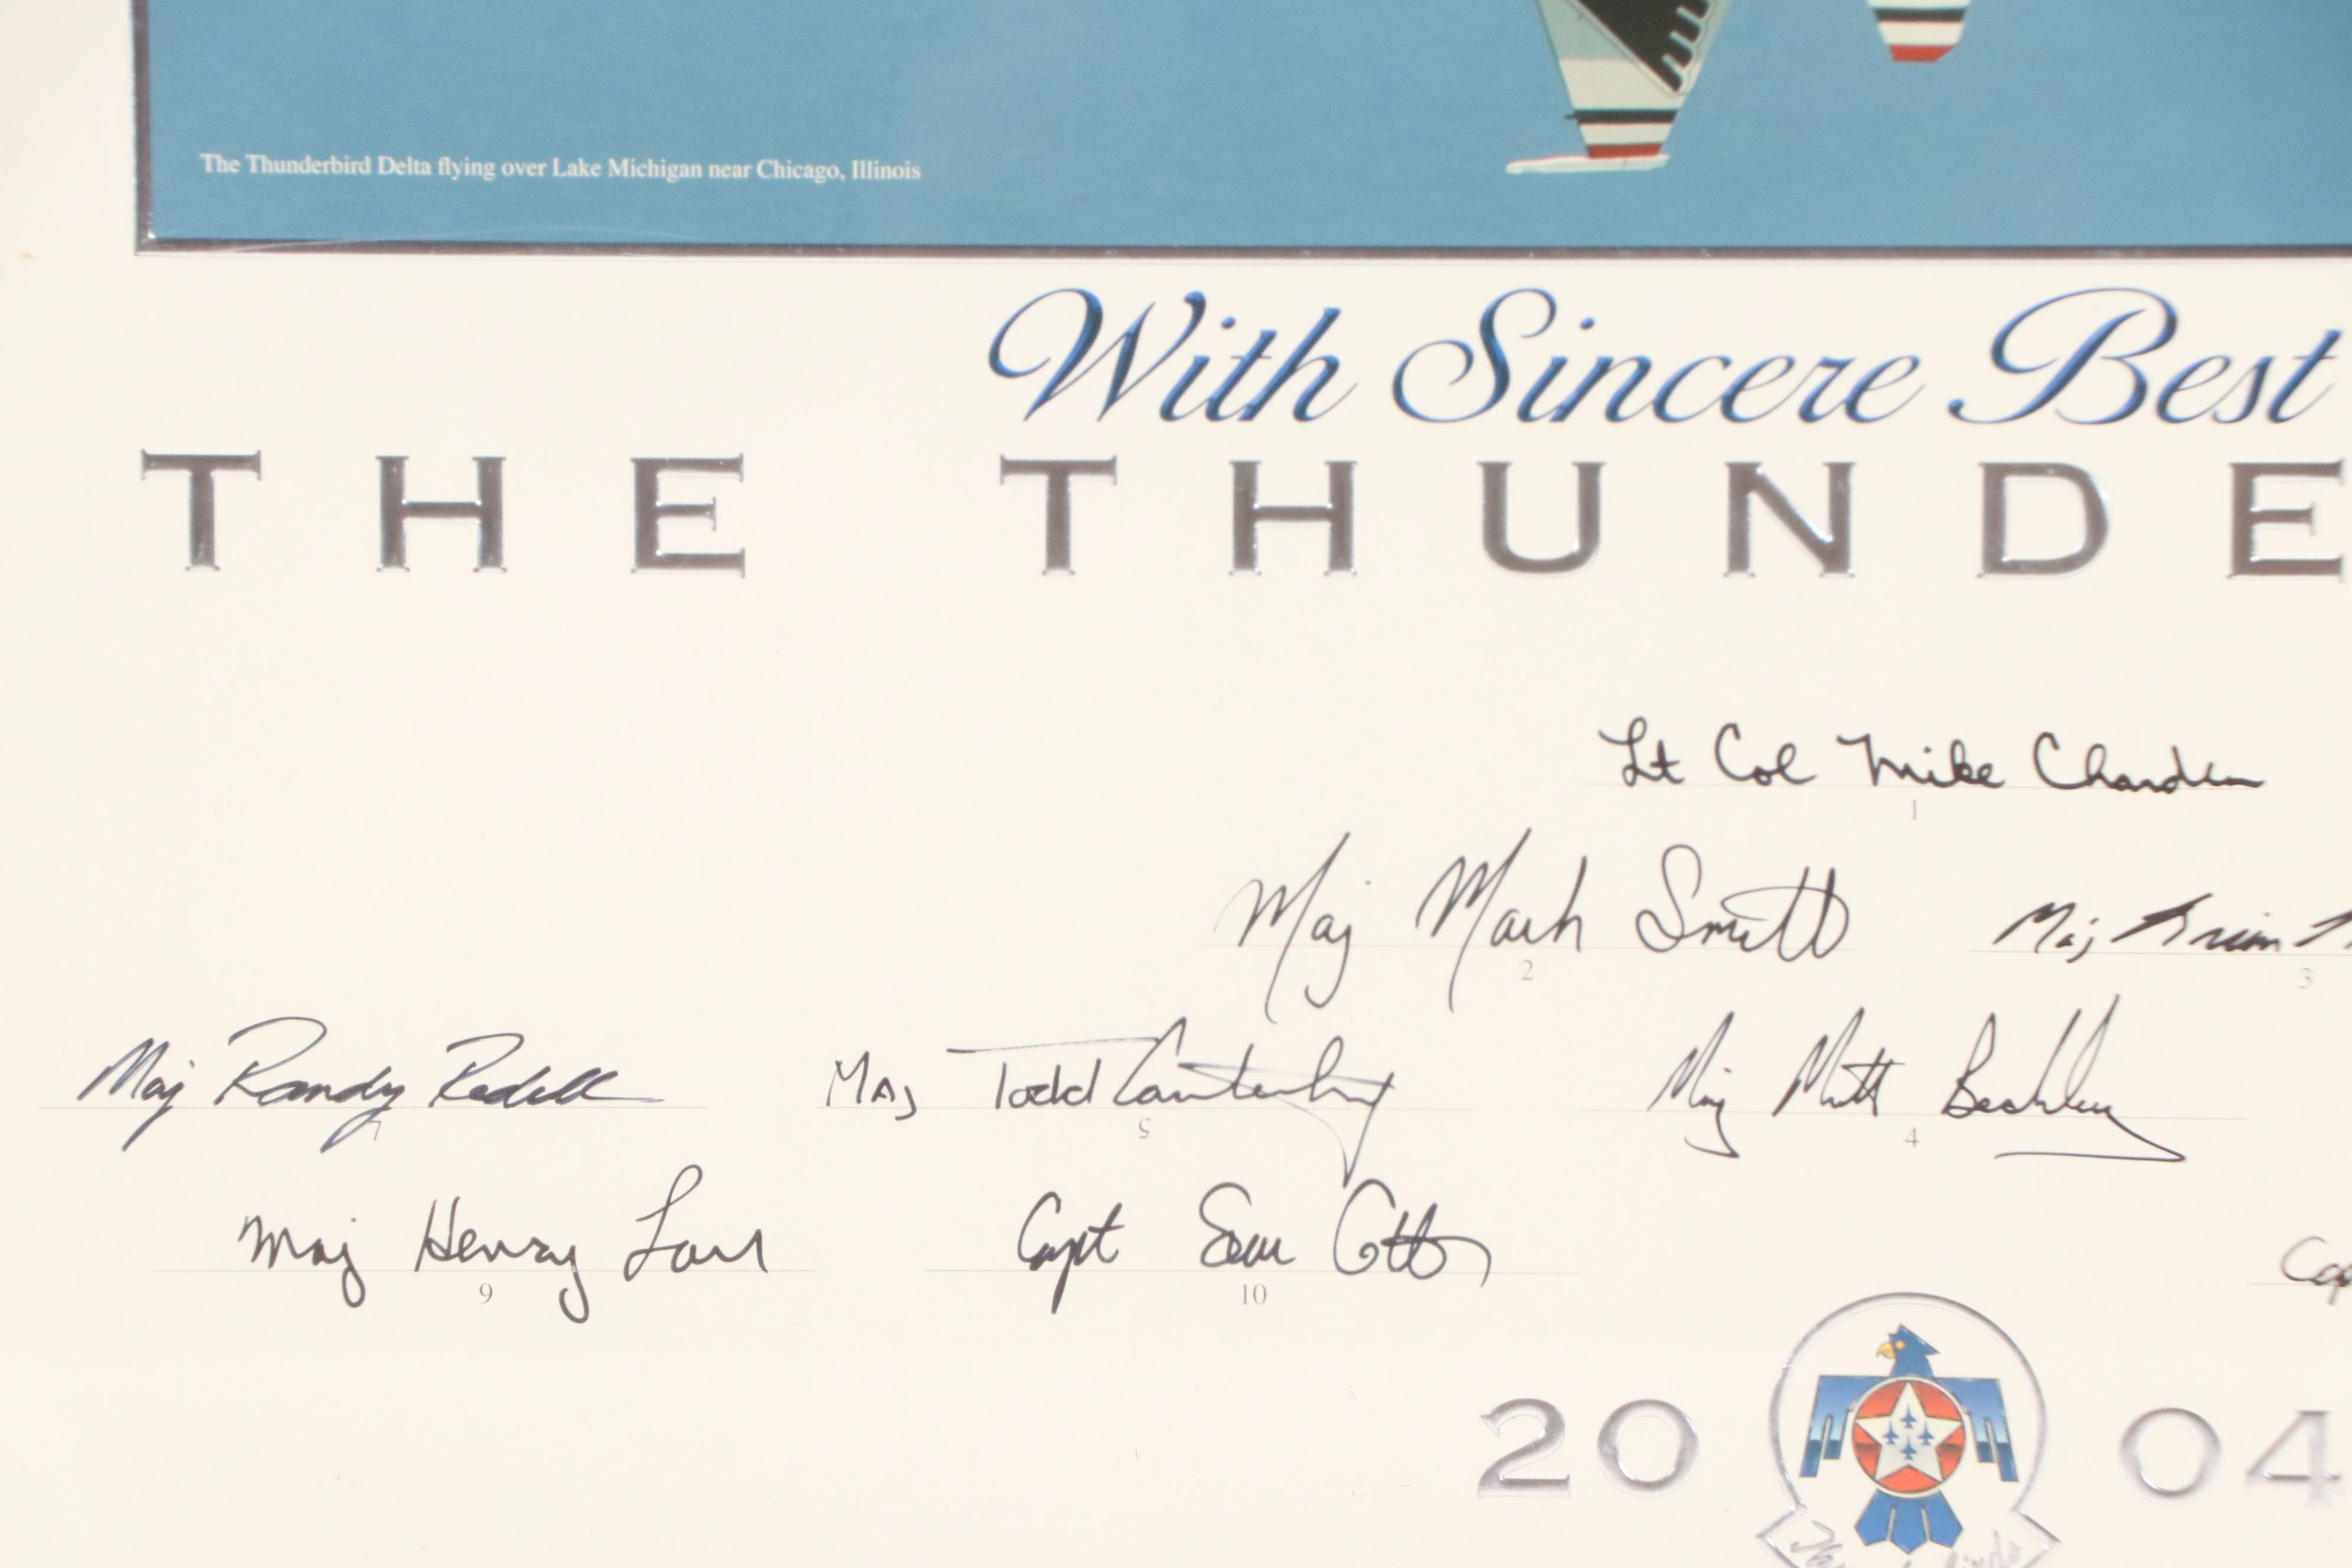 The Thunderbird Delta flying over Lake Michigan near Chicago, Illinois
With Sincere Best
THE THUNDE
Lt Col Mike Chandler
1
Maj Mark Smith
Maj Brian
2
3
Maj Randy Redell
Maj Todd Canterbury
Maj Matt Beakley
7
5
4
Maj Henry
Capt Sean
Cap
9
10
2004